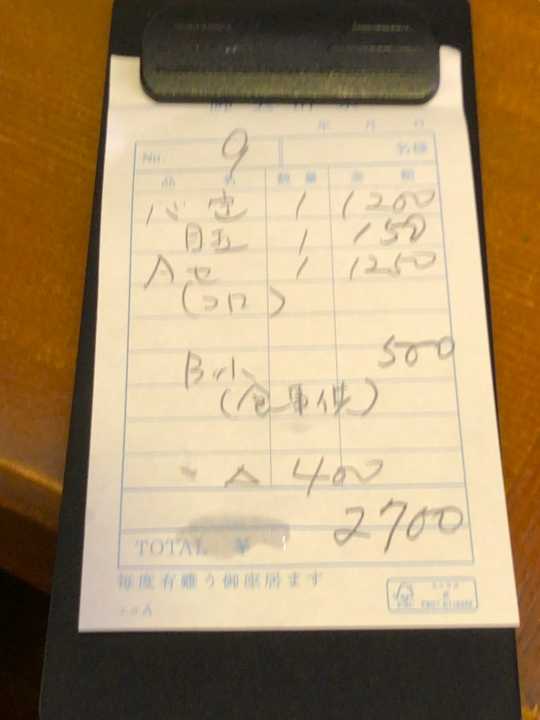 年 月 日
No. 9 名様
品 名 数 量 金 額
バ定 1 1200
目玉 1 150
Aセ 1 1250
(コロ)
500
B小
(食事供)
△ 400
2700
TOTAL ¥
毎度有難う御座居ます